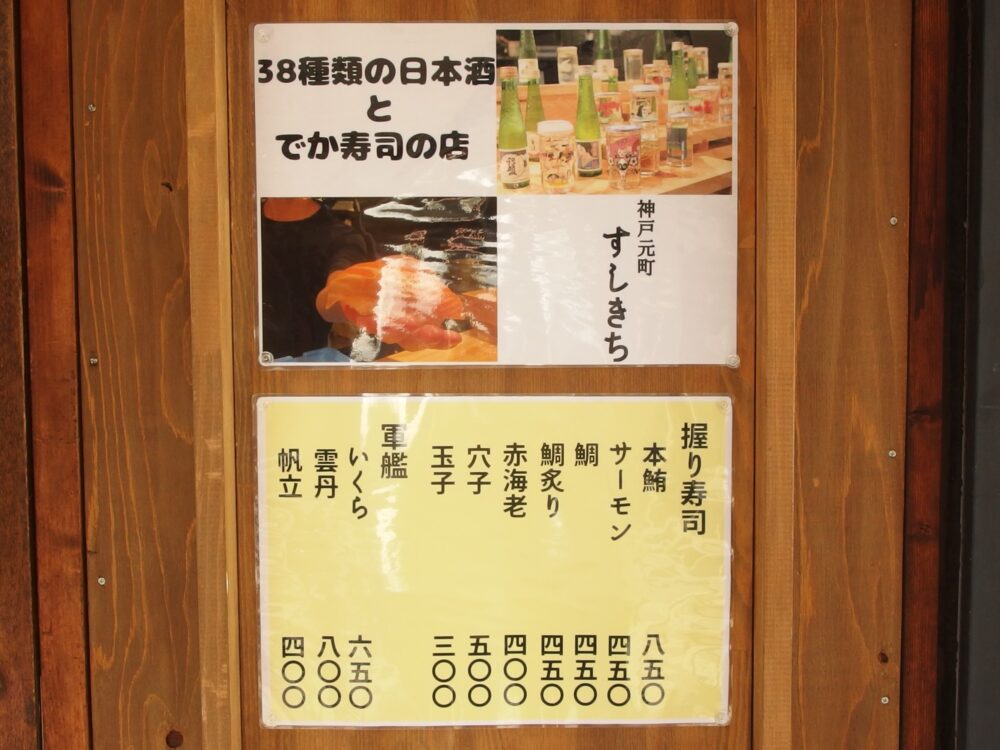 38種類の日本酒
と
でか寿司の店
神戸元町
すしきち
握り寿司
本鮪 八五〇
サーモン 四五〇
鯛 四五〇
鯛炙り 四五〇
赤海老 四〇〇
穴子 五〇〇
玉子 三〇〇
軍艦
いくら 六五〇
雲丹 八〇〇
帆立 四〇〇